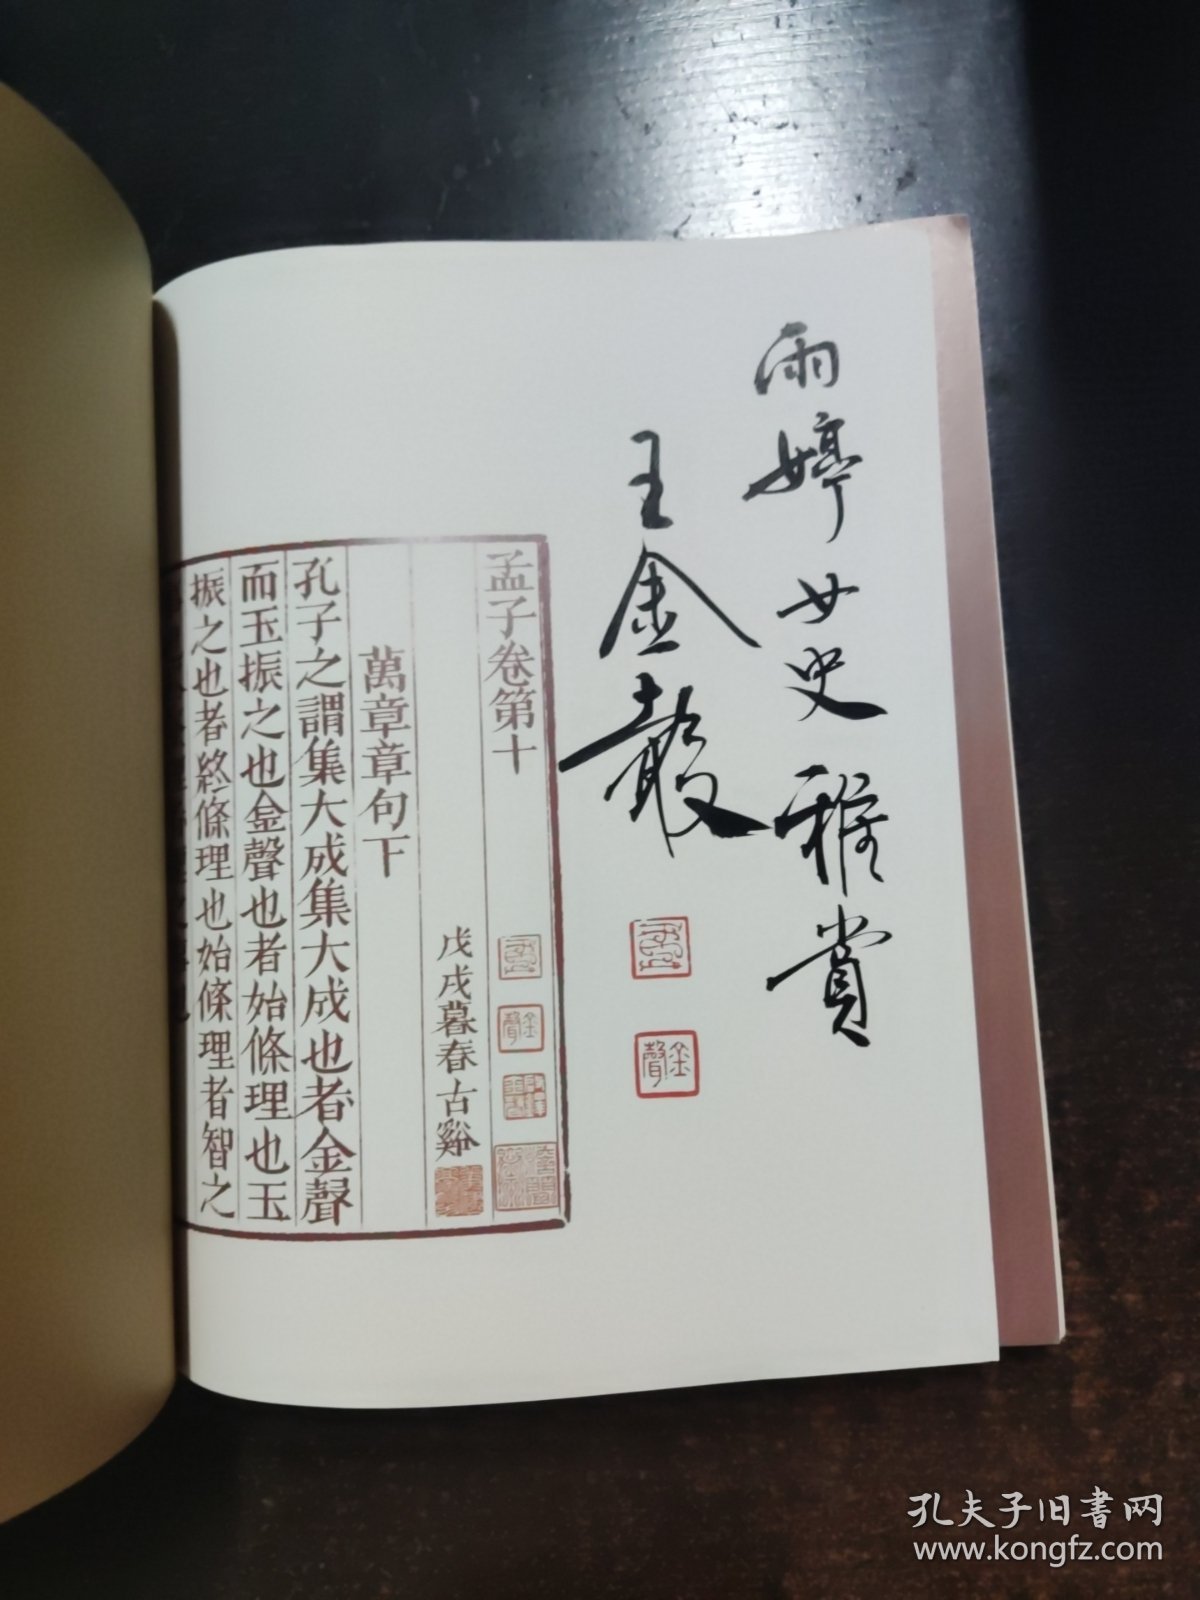 雨婷女史雅賞
王金聲
金聲
孟子卷第十
金聲
戊戌暮春古谿
萬章章句下
孔子之謂集大成集大成也者金聲
而玉振之也金聲也者始條理也玉
振之也者終條理也始條理者智之
孔夫子旧书网
www.kongfz.com